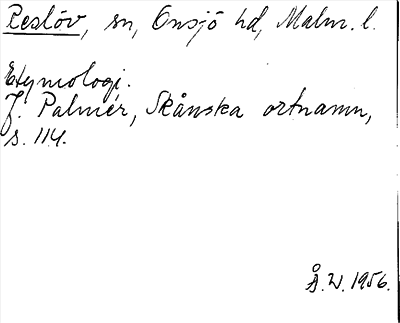 Reslöv, sn, Onsjö hd, Malm. l.
Etymologi.
J. Palmér, Skånska ortnamn,
s. 114.
Å. W. 1956.